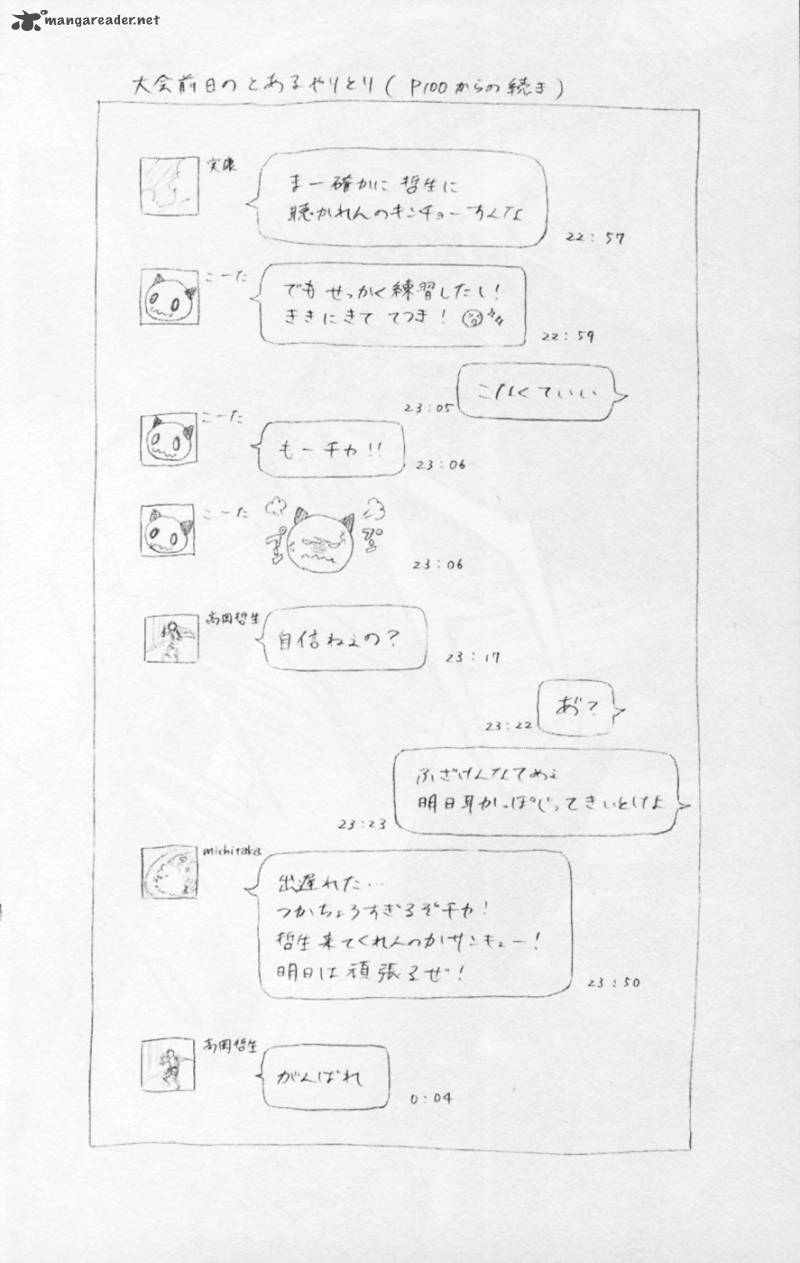 mangareader.net
大会前日のとあるやりとり(P100からの続き)
実康
まー確かに哲生に
聴かれんのキンチョーすんな
22:57
こーた
でもせっかく練習したし!
ききにきて てつき!
22:59
こなくていい
23:05
こーた
もーチカ!!
23:06
こーた
プン
プン
23:06
高岡哲生
自信ねぇの?
23:17
あ゛?
23:22
ふざけんなてめぇ
明日耳かっぽじってきいとけよ
23:23
michitaka
出遅れた…
つかちょろすぎるぞチカ!
哲生来てくれんのかサンキュー!
明日は頑張るぜ!
23:50
高岡哲生
がんばれ
0:04